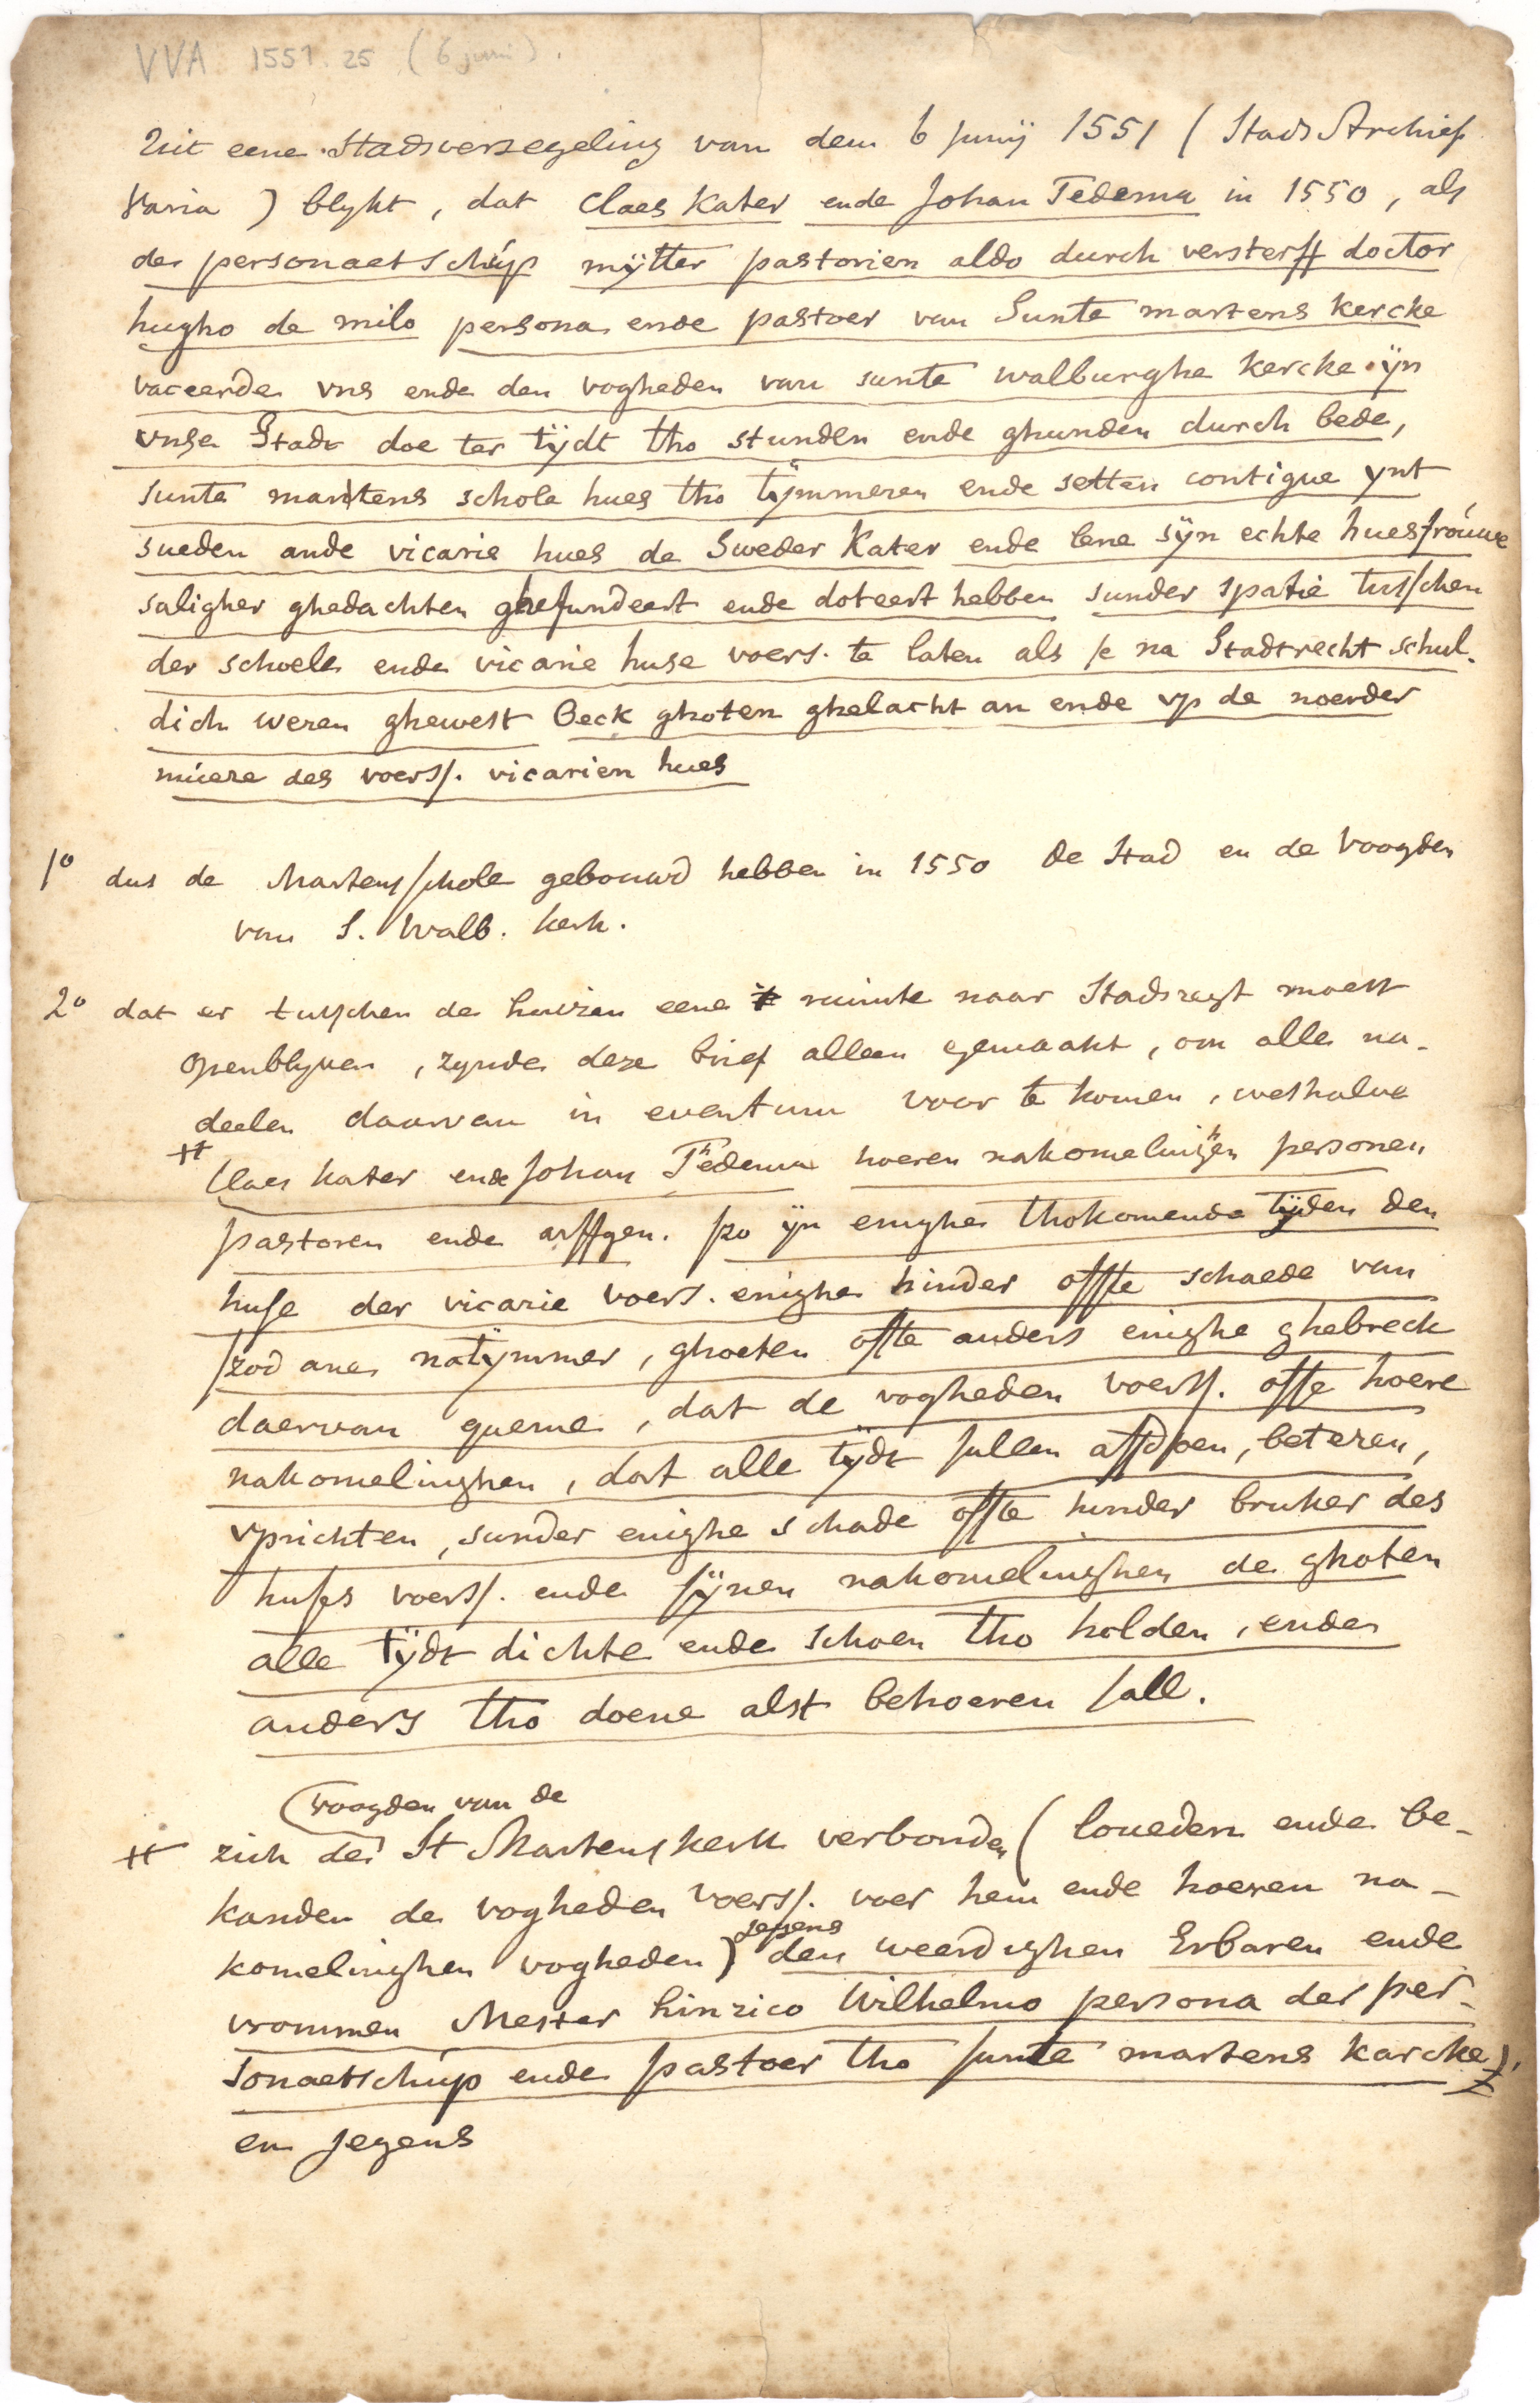 VVA 1551.25 (6 juni).
Uit eene Stadsverzegeling van den 6 Junij 1551 (Stads Archief
Varia) blykt, dat Claes Kater ende Johan Tedema in 1550, als
de personaetschup mÿtter pastorien aldo durch versterff doctor
hugho de milo persona ende pastoer van Sunte martens kercke
vaceerde vns ende den vogheden van sunte walburghe kercke ÿn
vnse Stadt doe ter tÿdt tho stunden ende ghunden durch bede,
sunte martens schole hues tho tÿmmeren ende setten contigue ynt
sueden ande vicarie hues de Sweder Kater ende lene sÿn echte huesfrouwe
saligher ghedachten ghefundeert ende doteert hebben sunder spatie tusschen
der schoele ende vicarie huse voers. te laten als se na Stadtrecht schul-
dich weren ghewest Beck ghoten ghelacht an ende vp de noerder
muere des voerss. vicarien hues
1° dus de Martensschole gebouwd hebben in 1550 de Stad en de Voogden
van S. Walb. kerk.
2° dat er tusschen de huizen eene ruimte naar Stadsregt moest
openblyven, zynde deze brief alleen gemaakt, om alle na-
deelen daarvan in eventum voor te komen, weshalve
# Claes Kater ende Johan Thedema hoeren nakomelinghen personen
pastoren ende arffgen. so ÿn enighe thokomende tÿden den
huse der vicarie voers. enighe hinder offte schaede van
szod ane natÿmmer, ghoeten ofte anders enighe ghebreck
daervan queme, dat de vogheden voerss. offe hoere
nakomelinghen, dat alle tÿdt sullen affdoen, beteren,
vprichten, sunder enighe schade offte hinder bruker des
huses voerss. ende sÿnen nakomelinghen de ghoten
alle tÿdt dichte ende schoen tho holden, ende
anders tho doene alst behoeren sall.
(voogden van de
# zich de St Martenskerk verbonden (loueden ende be-
kanden de vogheden voerss. voer hem ende hoeren na-
komelinghen vogheden) jegens den weerdighen Erbaren ende
vrommen Mester hinrico Wilhelmo persona der per-
sonaetschup ende pastoer tho sunte martens karcke),
en jegens